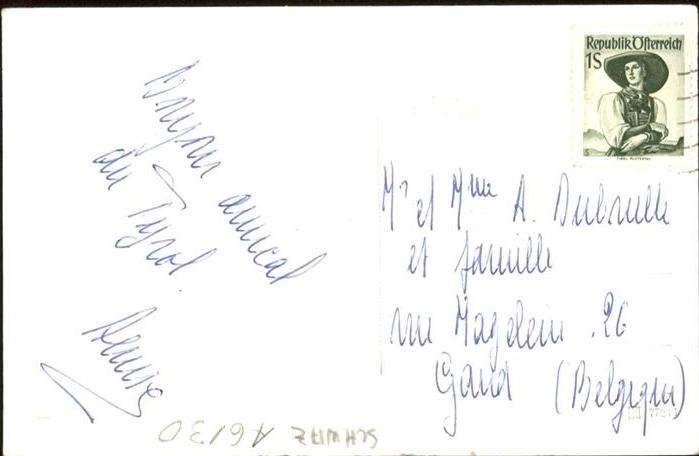 Bonjour amical
du Tyrol
Denise
Republik Österreich
1S
Mr et Mme A. Dubrulle
et famille
rue Magelein. 26
Gand (Belgique)
SCHWAZ A6130